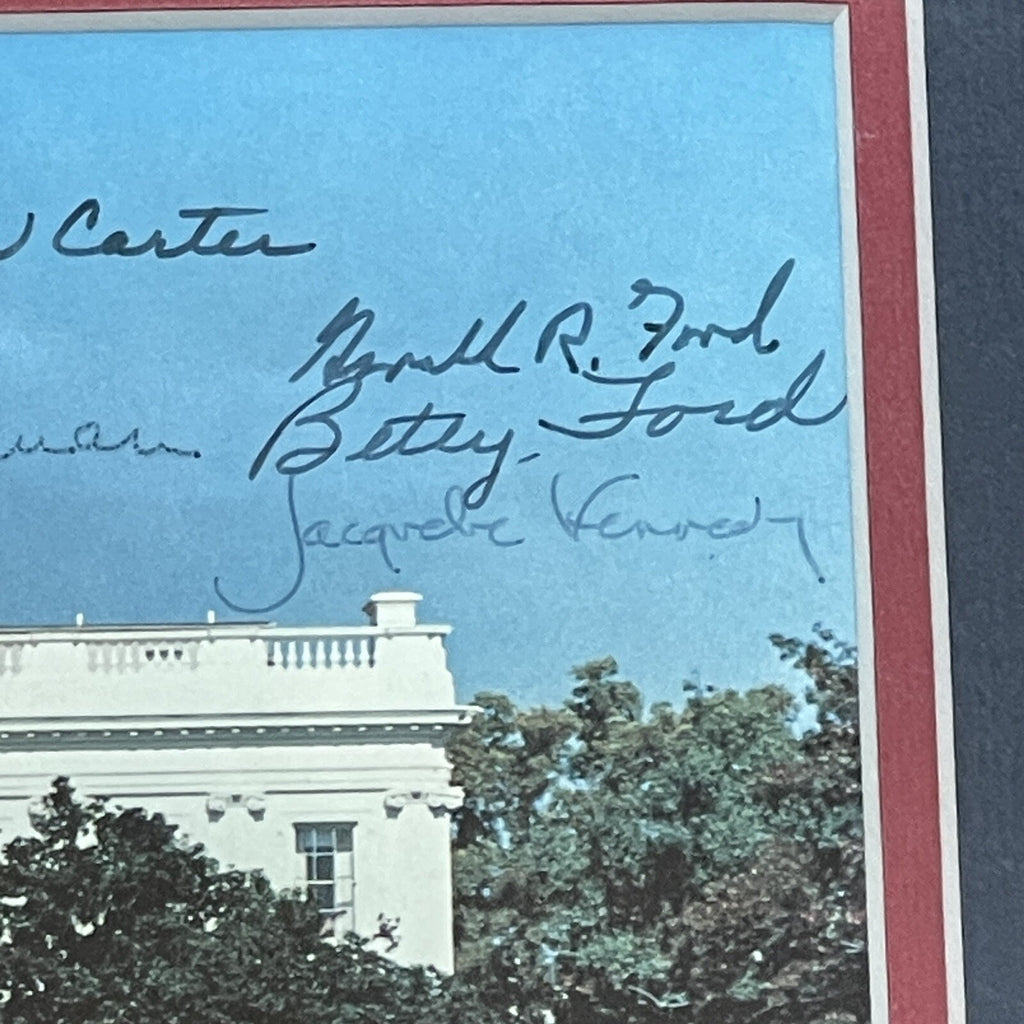 Carter
Gerald R. Ford
Betty Ford
Jacqueline Kennedy